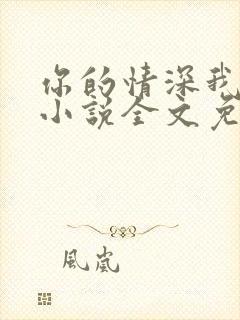 你的情深我
小说全文免
風嵐